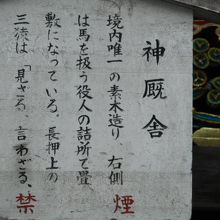 神厩舎
境内唯一の素木造り、右側
は馬を扱う役人の詰所で畳
敷になっている。長押上の
三猿は「見ざる 言わざる、
禁 煙